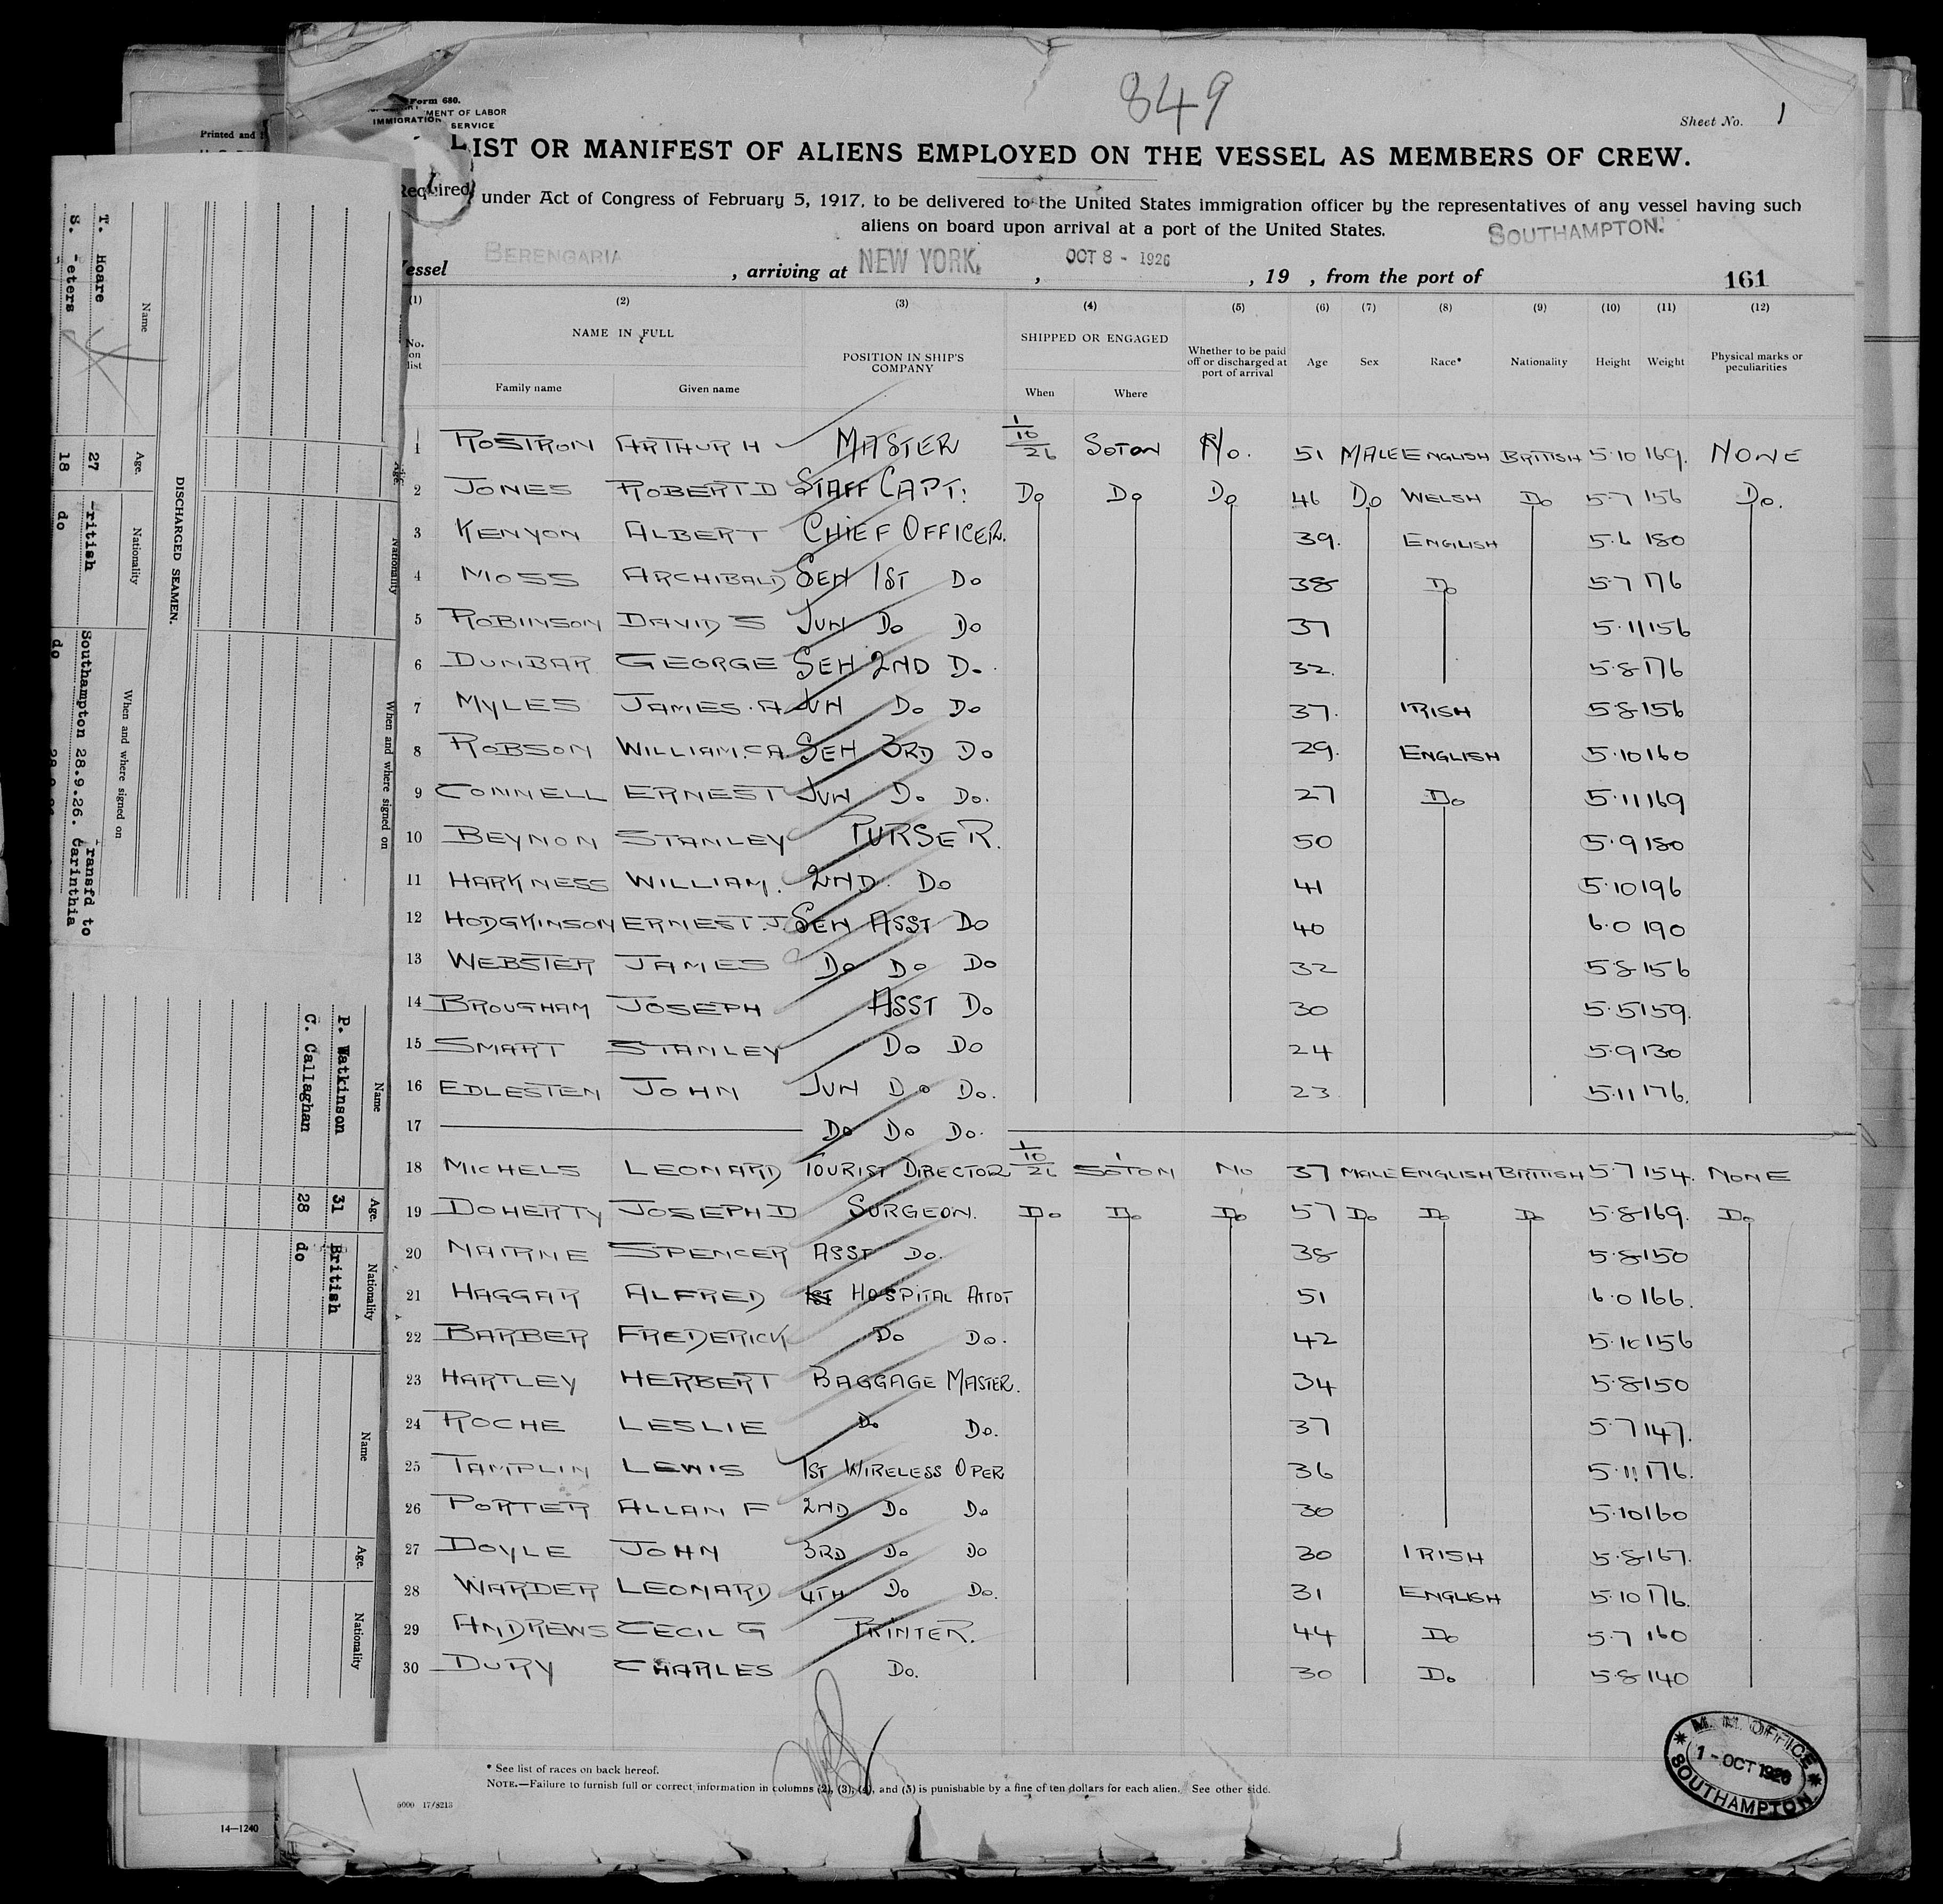 849
Form 680.
MENT OF LABOR
IMMIGRATION SERVICE
Sheet No. 1
LIST OR MANIFEST OF ALIENS EMPLOYED ON THE VESSEL AS MEMBERS OF CREW.
Required under Act of Congress of February 5, 1917, to be delivered to the United States immigration officer by the representatives of any vessel having such
aliens on board upon arrival at a port of the United States.
SOUTHAMPTON.
essel BERENGARIA, arriving at NEW YORK, OCT 8 - 1926, 19 , from the port of 161
(1) (2) (3) (4) (5) (6) (7) (8) (9) (10) (11) (12)
No. on list NAME IN FULL Family name Given name POSITION IN SHIP'S COMPANY SHIPPED OR ENGAGED When Where Whether to be paid off or discharged at port of arrival Age Sex Race* Nationality Height Weight Physical marks or peculiarities
1 ROSTRON ARTHUR H MASTER 1/10/26 SOTON No. 51 MALE ENGLISH BRITISH 5·10 169. NONE
2 JONES ROBERT D STAFF CAPT. Do Do Do 46 Do WELSH Do 5·7 156 Do.
3 KENYON ALBERT CHIEF OFFICER. 39. ENGLISH 5·6 180
4 MOSS ARCHIBALD SEN 1ST Do 38 Do 5·7 176
5 ROBINSON DAVID S JUN Do Do 37 5·11 156
6 DUNBAR GEORGE SEN 2ND Do. 32. 5·8 176
7 MYLES JAMES.A JUN Do Do 37. IRISH 5·8 156
8 ROBSON WILLIAM.C.A SEN 3RD Do 29. ENGLISH 5·10 160
9 CONNELL ERNEST JUN Do Do. 27 Do 5·11 169
10 BEYNON STANLEY PURSER. 50 5·9 180
11 HARKNESS WILLIAM. 2ND. Do 41 5·10 196
12 HODGKINSON ERNEST.J. SEN ASST Do 40 6·0 190
13 WEBSTER JAMES Do Do Do 32 5·8 156
14 BROUGHAM JOSEPH ASST Do 30 5·5 159.
15 SMART STANLEY Do Do 24 5·9 130
16 EDLESTEN JOHN JUN Do Do. 23 5·11 176.
17 Do Do Do.
18 MICHELS LEONARD TOURIST DIRECTOR 1/10/26 SOTON No 37 MALE ENGLISH BRITISH 5·7 154. NONE
19 DOHERTY JOSEPH D SURGEON. Do Do Do 57 Do Do Do 5·8 169. Do
20 NAIRNE SPENCER ASST Do. 38 5·8 150
21 HAGGAR ALFRED 1ST HOSPITAL ATTDT 51 6·0 166.
22 BARBER FREDERICK Do Do. 42 5·10 156
23 HARTLEY HERBERT BAGGAGE MASTER. 34 5·8 150
24 ROCHE LESLIE Do Do. 37 5·7 147.
25 TAMPLIN LEWIS 1ST WIRELESS OPER 36 5·11 176.
26 PORTER ALLAN F 2ND Do Do 30 5·10 160
27 DOYLE JOHN 3RD Do Do 30 IRISH 5·8 167.
28 WARDER LEONARD 4TH Do Do. 31 ENGLISH 5·10 176.
29 ANDREWS CECIL G PRINTER. 44 Do 5·7 160
30 DURY CHARLES Do. 30 Do 5·8 140
* See list of races on back hereof.
NOTE.—Failure to furnish full or correct information in columns (2), (3), (4), and (5) is punishable by a fine of ten dollars for each alien. See other side.
5000 17/8213
M. M. OFFICE
1 - OCT 1926
SOUTHAMPTON
14—1240
Printed and
DISCHARGED SEAMEN.
Name Age. Nationality When and where signed on
T. Hoare 27 -ritish Southampton 28.9.26. Transfd to Carinthia
S. -eters 18 do do
Age. Nationality When and where signed on
Name Age. Nationality
P. Watkinson 31 British
C. Callaghan 28 do
Name Age. Nationality